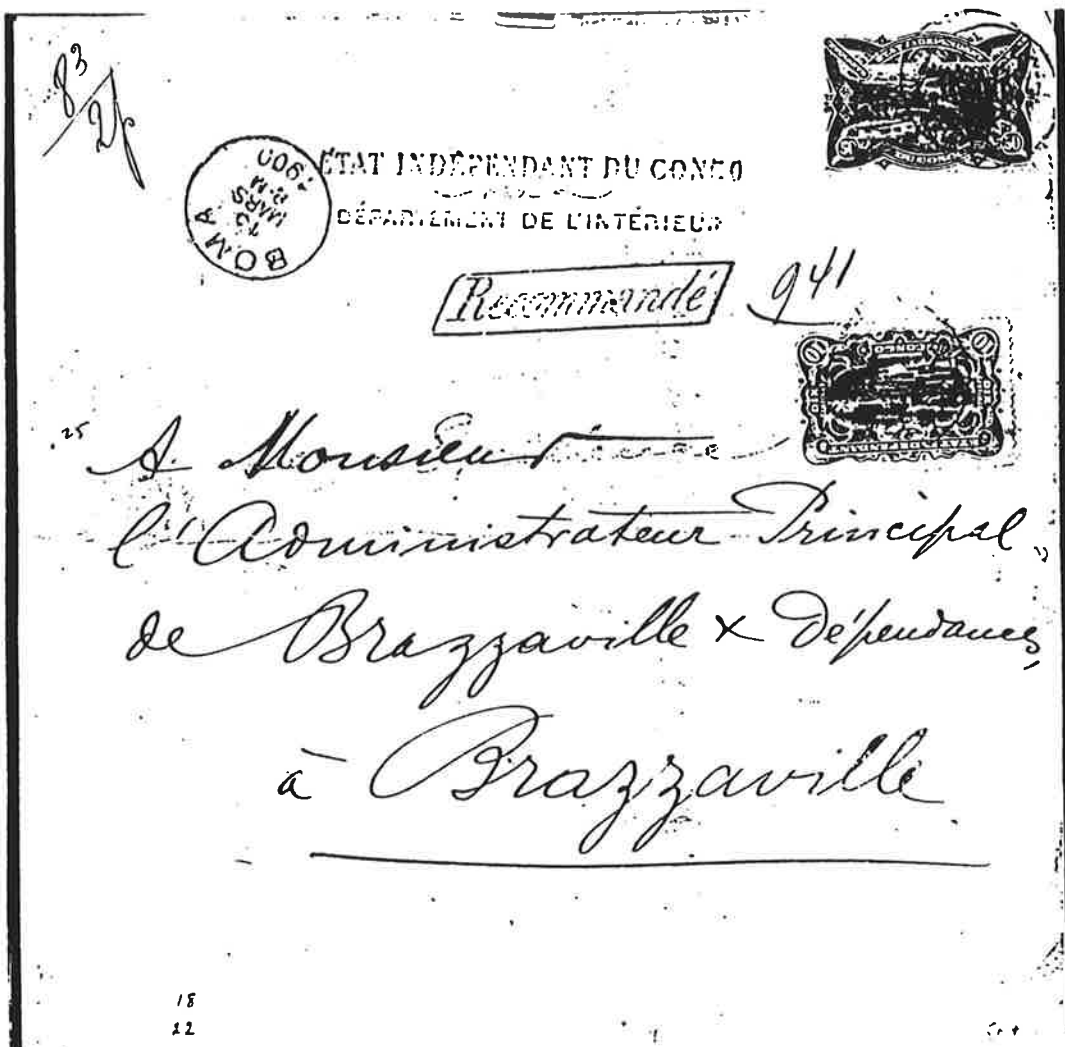 83
ÉTAT INDÉPENDANT DU CONGO
DÉPARTEMENT DE L'INTÉRIEUR
BOMA
MARS
1900
Recommandé
941
25
A Monsieur
l'Administrateur Principal
de Brazzaville & dépendances
à Brazzaville
18
22